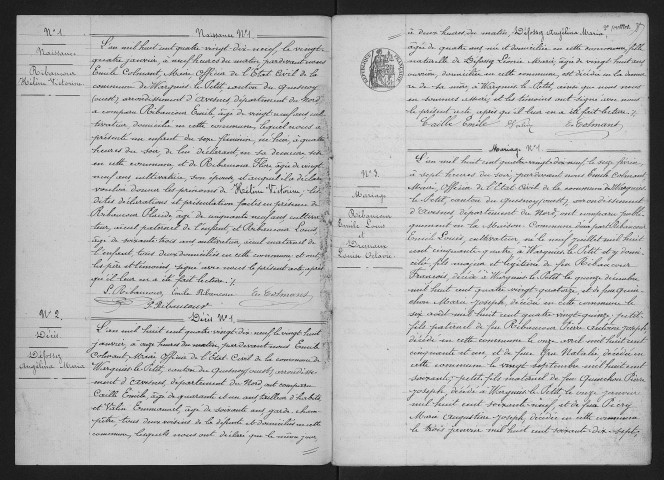 N° 1.
Naissance
Ribaucour
Hélène Victoire
Naissance N° 1.
L'an mil huit cent quatre vingt-dix neuf, le vingt-
quatre janvier, à neuf heures du matin, pardevant nous
Emile Colmant, Maire, Officier de l'Etat Civil de la
commune de Wargnies le Petit, canton du Quesnoy
(ouest) arrondissement d'Avesnes département du Nord,
a comparu Ribaucour Emile, âgé de vingt neuf ans cul-
tivateur, domicilié en cette commune, lequel nous a
présenté un enfant du sexe féminin, né hier, à quatre
heures du soir, de lui déclarant, en sa demeure sise
en cette commune et de Ribaucour Flore, âgée de vingt
neuf ans cultivatrice, son épouse, et auquel il a déclaré
vouloir donner les prénoms de Hélène Victoire, les
dites déclarations et présentation faites en présence de
Ribaucour Placide, âgé de cinquante neuf ans cultiva-
teur, aïeul paternel de l'enfant et Ribaucour Louis
âgé de soixante trois ans cultivateur, aïeul maternel de
l'enfant, tous deux domiciliés en cette commune et ont
les père et témoins, signé avec nous le présent acte, après
qu'il leur en a été fait lecture. /.
L. Ribaucour Emile Ribaucour E. Colmant
P. Ribaucour
N° 2.
Décès
Défossez
Angélina Maria
Décès N° 1.
L'an mil huit cent quatre vingt-dix neuf, le vingt huit
janvier, à onze heures du matin, pardevant nous Emile
Colmant, Maire Officier de l'Etat Civil de la commune de
Wargnies le Petit, canton du Quesnoy (ouest), arrondisse-
ment d'Avesnes, département du Nord, ont comparu
Caille Emile, âgé de quarante et un ans tailleur d'habits
et Valin Emmanuel, âgé de soixante ans garde cham-
pêtre, tous deux voisins de la défunte et domiciliés en cette
commune, lesquels nous ont déclaré que le même jour
à deux heures du matin, Défossez Angélina Maria
âgée de quatre ans née et domiciliée en cette commune, fille
naturelle de Défossez Léonie Marie, âgée de vingt huit ans
ouvrière, domiciliée en cette commune, est décédée en la demeu-
re de sa mère, à Wargnies le Petit, ainsi que nous nous
en sommes assuré, et les témoins ont signé avec nous
le présent acte, après qu'il leur en a été fait lecture. /.
Caille Emile E. Colmant
N° 3.
Mariage
Ribaucour
Emile Louis
et
Louise Octavie
Mariage N° 1.
L'an mil huit cent quatre vingt dix neuf, le onze février
à sept heures du soir, pardevant nous Emile Colmant,
Maire, Officier de l'Etat Civil de la commune de Wargnies
le Petit, canton du Quesnoy (ouest), arrondissement
d'Avesnes département du Nord, ont comparu publi-
quement en la Maison Commune
Emile Louis, cultivateur
cent cinquante quatre, à Wargnies le Petit et y domi-
cilié, fils majeur et légitime de feu Ribaucour
François, décédé à Wargnies le Petit, le quinze décembre
mil huit cent quatre vingt quatorze, et de feu Quin-
chon Marie Joseph, décédée en cette commune, le
six août mil huit cent quatre vingt quinze, petit
fils paternel de feu Ribaucour Pierre Antoine Joseph,
décédé à Wargnies le Petit, le onze avril mil huit cent
cinquante et un, et de feue Gru Natalie, décédée en
cette commune, le vingt septembre mil huit cent
soixante, petit fils maternel de feu Quinchon Pierre
Joseph, décédé à Wargnies le Petit, le onze janvier
mil huit cent soixante-neuf, et de feue
Marie Augustine Joseph, décédée en cette commune
le trois janvier mil huit cent soixante dix-sept,